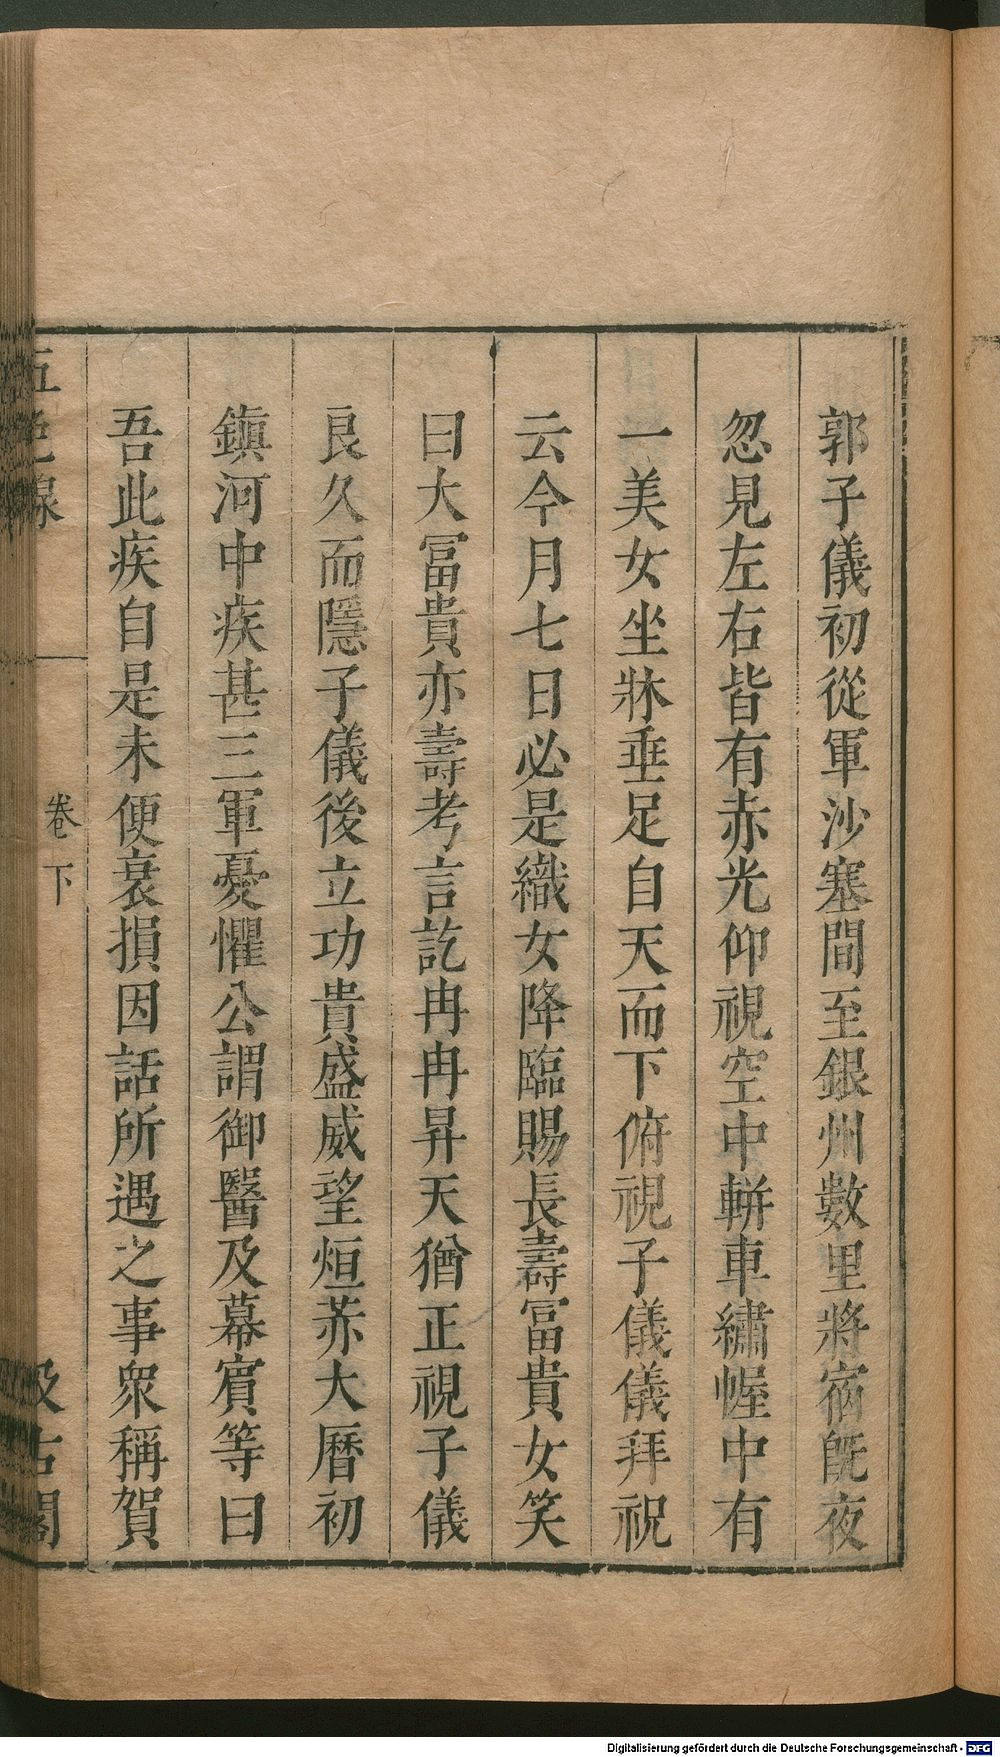 郭子儀初從軍沙塞間至銀州數里將宿旣夜
忽見左右皆有赤光仰視空中輧車繡幄中有
一美女坐牀垂足自天而下俯視子儀儀拜祝
云今月七日必是織女降臨賜長壽冨貴女笑
曰大冨貴亦壽考言訖冉冉昇天猶正視子儀
良久而隱子儀後立功貴盛威望烜赫大曆初
鎮河中疾甚三軍憂懼公謂御醫及幕賔等曰
吾此疾自是未便衰損因話所遇之事衆稱賀
五色線
卷下
汲古閣
Digitalisierung gefördert durch die Deutsche Forschungsgemeinschaft - DFG